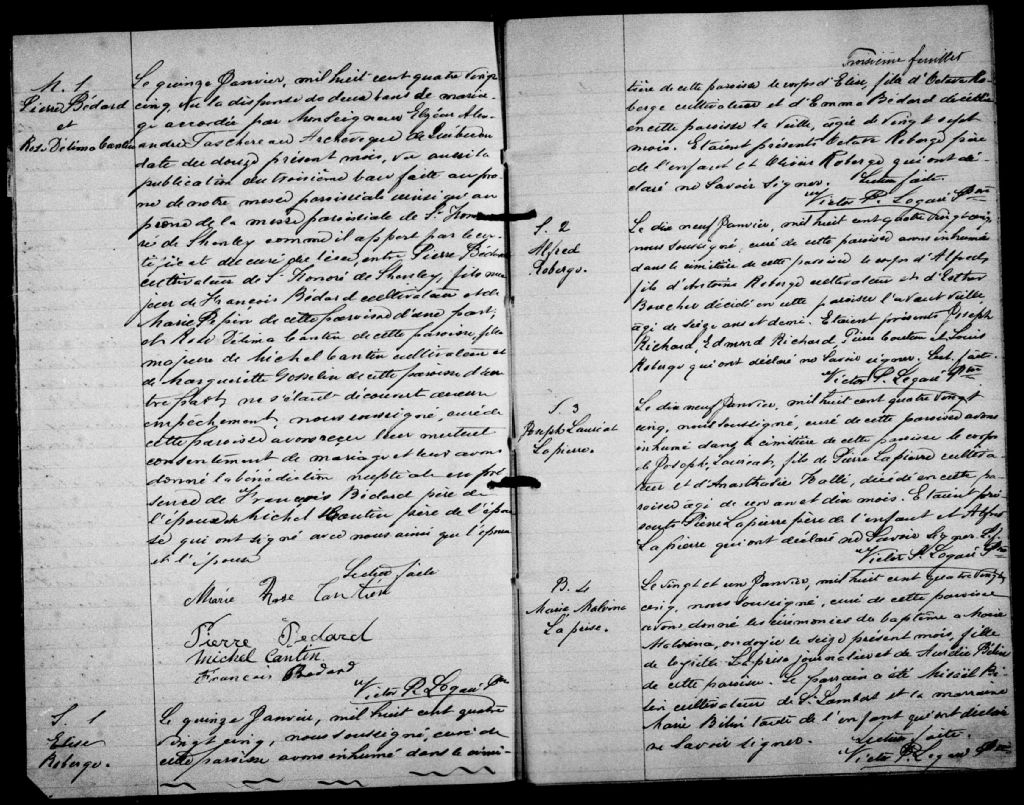 M. 1
Pierre Bédard
et
Rose Délima Cantin
Le quinze Janvier, mil huit cent quatre vingt
cinq vu la dispense de deux bans de maria-
ge accordée par Monseigneur Elzéar Alex-
andre Taschereau Archevêque de Québec en
date du douze présent mois, vu aussi la
publication du troisième ban faite au prô-
ne de notre messe paroissiale ainsi qu'au
prône de la messe paroissiale de St Hono-
ré de Shenley comme il appert par le cer-
tificat du curé du lieu, entre Pierre Bédard
cultivateur de St Honoré de Shenley, fils ma-
jeur de François Bédard cultivateur et de
Marie Pepin de cette paroisse d'une part,
et Rose Délima Cantin de cette paroisse, fille
majeure de Michel Cantin cultivateur et
de Marguerite Gosselin de cette paroisse d'au-
tre part, ne s'étant découvert aucun
empêchement, nous soussigné, curé de
cette paroisse avons reçu leur mutuel
consentement de mariage et leur avons
donné la bénédiction nuptiale en pré-
sence de François Bédard père de
l'époux de Michel Cantin père de l'épou-
se qui ont signé avec nous ainsi que l'époux
et l'épouse
Lecture faite
Marie Rose Cantin
Pierre Bedard
Michel Cantin
François Bédard
Victor P. Legaré Ptre
S. 1
Elise
Roberge.
Le quinze Janvier, mil huit cent quatre
vingt cinq, nous soussigné, curé de
cette paroisse avons inhumé dans le cime-
Troisième feuillet
tière de cette paroisse le corps d'Elise, fille d'Octave Ro-
berge cultivateur et d'Emma Bédard décédée
en cette paroisse la veille, agée de vingt sept
mois. Etaient présents Octave Roberge père
de l'enfant et Olivier Roberge qui ont dé-
claré ne savoir signer. Lecture faite.
Victor P. Legaré Ptre
S. 2
Alfred
Roberge.
Le dix neuf Janvier, mil huit cent quatre vingt cinq,
nous soussigné, curé de cette paroisse avons inhumé
dans le cimetière de cette paroisse le corps d'Alfred,
fils d'Antoine Roberge cultivateur et d'Esther
Boucher décédé en cette paroisse l'avant veille,
agé de seize ans et demi. Etaient présents Joseph
Richard, Edmond Richard, Pierre et Louis
Roberge qui ont déclaré ne savoir signer. Lect. faite.
Victor P. Legaré Ptre
S. 3
Joseph Lauréat
Lapierre.
Le dix neuf Janvier, mil huit cent quatre vingt
cinq, nous soussigné, curé de cette paroisse avons
inhumé dans le cimetière de cette paroisse le corps
de Joseph Lauréat, fils de Pierre Lapierre cultiva-
teur et d'Anasthasie Hallé, décédé en cette pa-
roisse agé de un an et dix mois. Etaient pré-
sents Pierre Lapierre père de l'enfant et Alfred
Lapierre qui ont déclaré ne savoir signer. L. f.
Victor P. Legaré Ptre
B. 4
Marie Malvina
Laprise.
Le vingt et un Janvier, mil huit cent quatre vingt
cinq, nous soussigné, curé de cette paroisse
avons donné les cérémonies du baptême à Marie
Malvina, ondoyée le seize présent mois, fille
de Laprise journalier et de Aurélie Bilin
de cette paroisse. Le parrain a été Bi-
lin cultivateur de St Lambert et la marraine
Marie Bilin tante de l'enfant qui ont déclaré
ne savoir signer. Lecture faite.
Victor P. Legaré Ptre